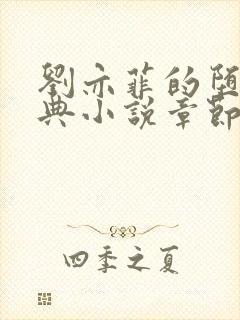 劉亦菲的堕
典小說章節
四季之夏